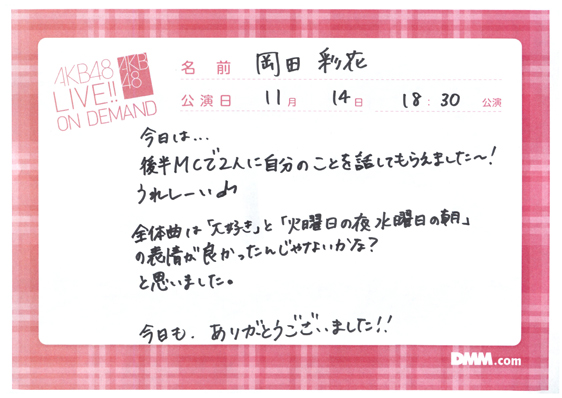 AKB48
LIVE!!
ON DEMAND
AKB
48
名前 岡田 彩花
公演日 11月 14日 18:30 公演
今日は...
後半MCで2人に自分のことを話してもらえました〜!
うれしーい♪
全体曲は「大好き」と「火曜日の夜 水曜日の朝」
の表情が良かったんじゃないかな?
と思いました。
今日も、ありがとうございました!!
DMM.com